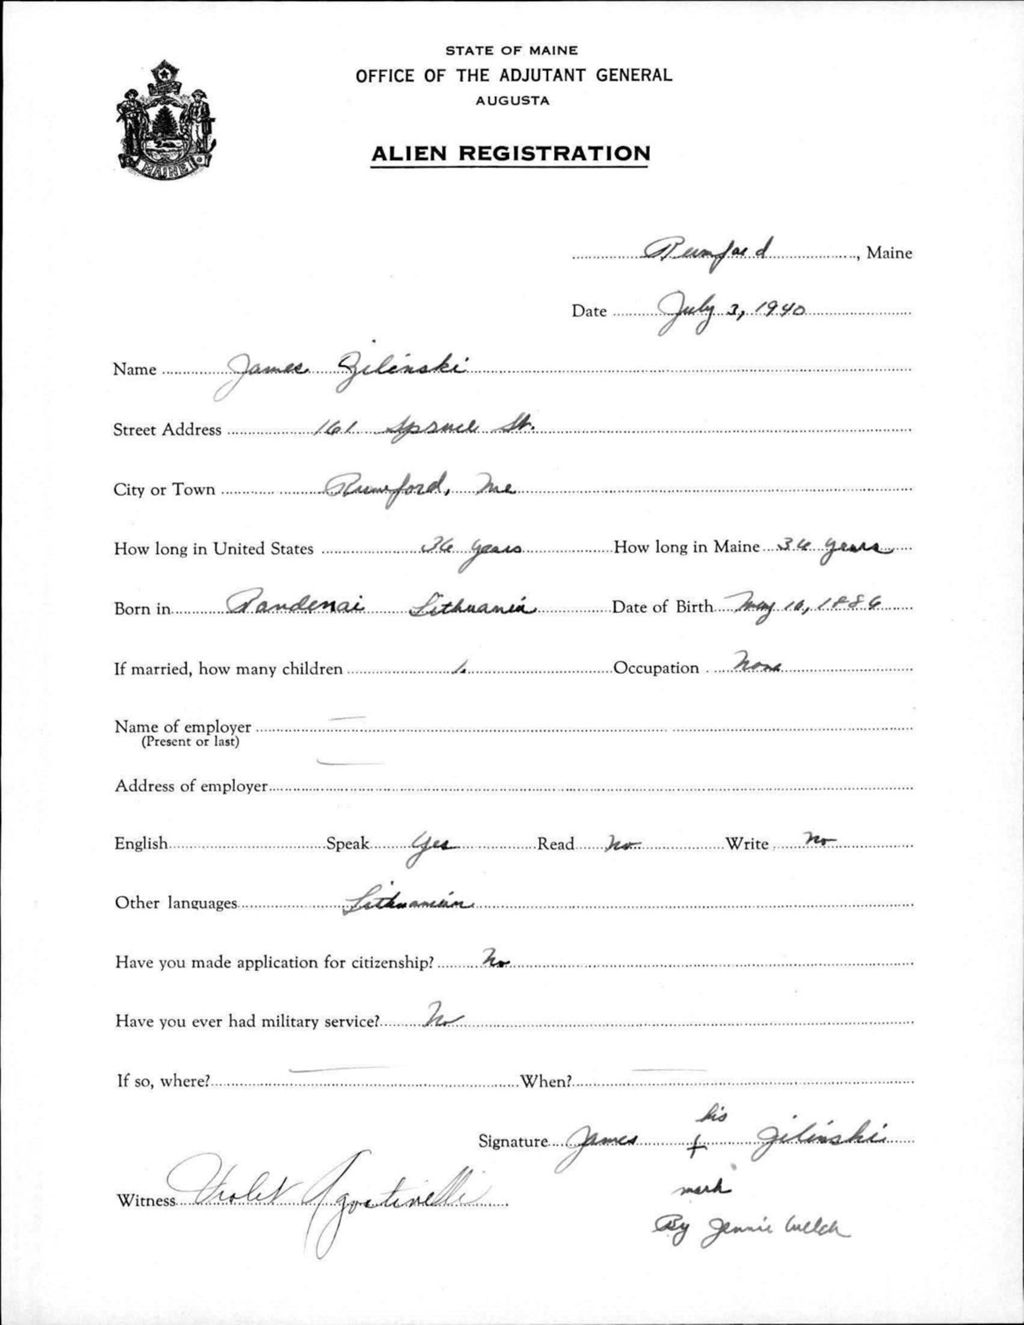 STATE OF MAINE
OFFICE OF THE ADJUTANT GENERAL
AUGUSTA
ALIEN REGISTRATION
MAINE
Rumford, Maine
Date July 3, 1940
Name James Zilinski
Street Address 161 Spruce St.
City or Town Rumford, Me
How long in United States 36 years How long in Maine 36 years
Born in Pandenai Lithuania Date of Birth May 10, 1886
If married, how many children 1. Occupation None
Name of employer
(Present or last)
Address of employer
English Speak Yes Read No Write No
Other languages Lithuanian
Have you made application for citizenship? No
Have you ever had military service? No
If so, where? When?
his
Signature James + Zilinski
mark
Witness Violet Agostinelli
By Jennie Welch